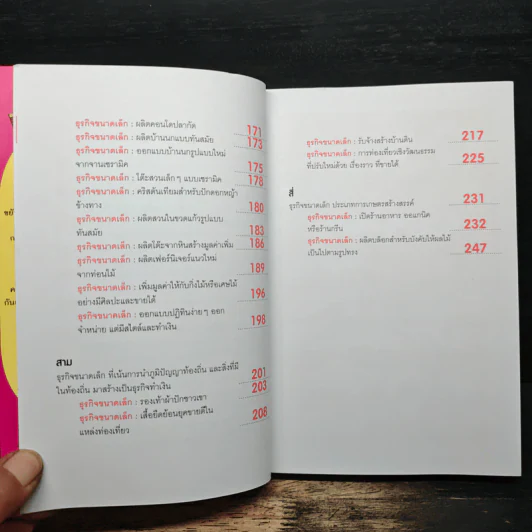 ธุรกิจขนาดเล็ก : ผลิตคอนโดปลากัด 171
ธุรกิจขนาดเล็ก : ผลิตบ้านนกแบบทันสมัย 173
ธุรกิจขนาดเล็ก : ออกแบบบ้านนกรูปแบบใหม่
จากจานเซรามิค 175
ธุรกิจขนาดเล็ก : โต๊ะสวนเล็กๆ แบบเซรามิค 178
ธุรกิจขนาดเล็ก : คริสตันเทียมสำหรับปักดอกหญ้า
ข้างทาง 180
ธุรกิจขนาดเล็ก : ผลิตสวนในขวดแก้วรูปแบบ
ทันสมัย 183
ธุรกิจขนาดเล็ก : ผลิตโต๊ะจากหินสร้างมูลค่าเพิ่ม 186
ธุรกิจขนาดเล็ก : ผลิตเฟอร์นิเจอร์แนวใหม่
จากท่อนไม้ 189
ธุรกิจขนาดเล็ก : เพิ่มมูลค่าให้กับกิ่งไม้หรือเศษไม้
อย่างมีศิลปะและขายได้ 196
ธุรกิจขนาดเล็ก : ออกแบบปฏิทินง่ายๆ ออก
จำหน่าย แต่มีสไตล์และทำเงิน 198
สาม
ธุรกิจขนาดเล็ก ที่เน้นการนำภูมิปัญญาท้องถิ่น และสิ่งที่มี
ในท้องถิ่น มาสร้างเป็นธุรกิจทำเงิน 201
ธุรกิจขนาดเล็ก : รองเท้าผ้าปักชาวเขา 203
ธุรกิจขนาดเล็ก : เสื้อยืดย้อนยุคขายดีใน
แหล่งท่องเที่ยว 208
ธุรกิจขนาดเล็ก : รับจ้างสร้างบ้านดิน 217
ธุรกิจขนาดเล็ก : การท่องเที่ยวเชิงวัฒนธรรม
ที่ปรับใหม่ด้วย เรื่องราว ที่ขายได้ 225
สี่
ธุรกิจขนาดเล็ก ประเภทการเกษตรสร้างสรรค์ 231
ธุรกิจขนาดเล็ก : เปิดร้านอาหาร ออแกนิค
หรือร้านกรีน 232
ธุรกิจขนาดเล็ก : ผลิตบล็อกสำหรับบังคับให้ผลไม้
เป็นไปตามรูปทรง 247